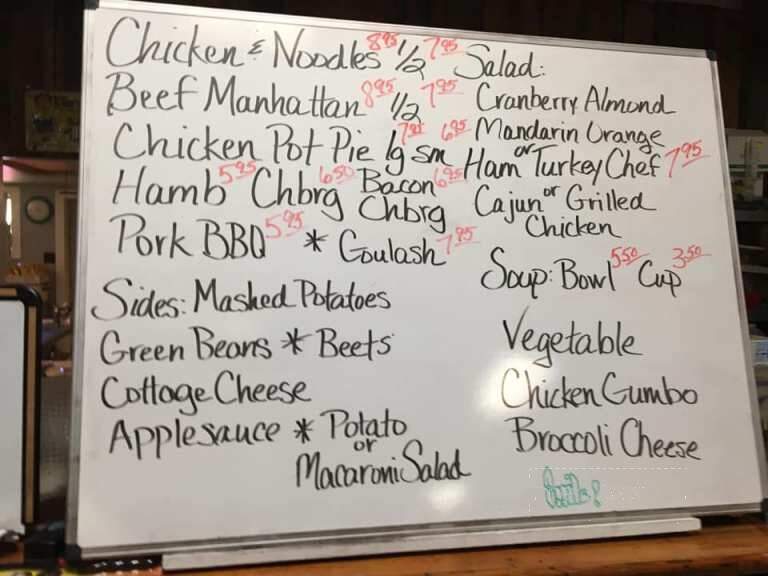 Chicken & Noodles 8.95 1/2 7.95
Beef Manhattan 8.95 1/2 7.95
Chicken Pot Pie lg 7.95 sm 6.95
Hamb 5.95 Chbrg 6.50 Bacon Chbrg 6.95
Pork BBQ 5.95 * Goulash 7.95
Sides: Mashed Potatoes
Green Beans * Beets
Cottage Cheese
Applesauce * Potato
or
Macaroni Salad
Salad:
Cranberry Almond
Mandarin Orange
Ham or Turkey Chef 7.95
Cajun or Grilled
Chicken
Soup: Bowl 5.50 Cup 3.50
Vegetable
Chicken Gumbo
Broccoli Cheese